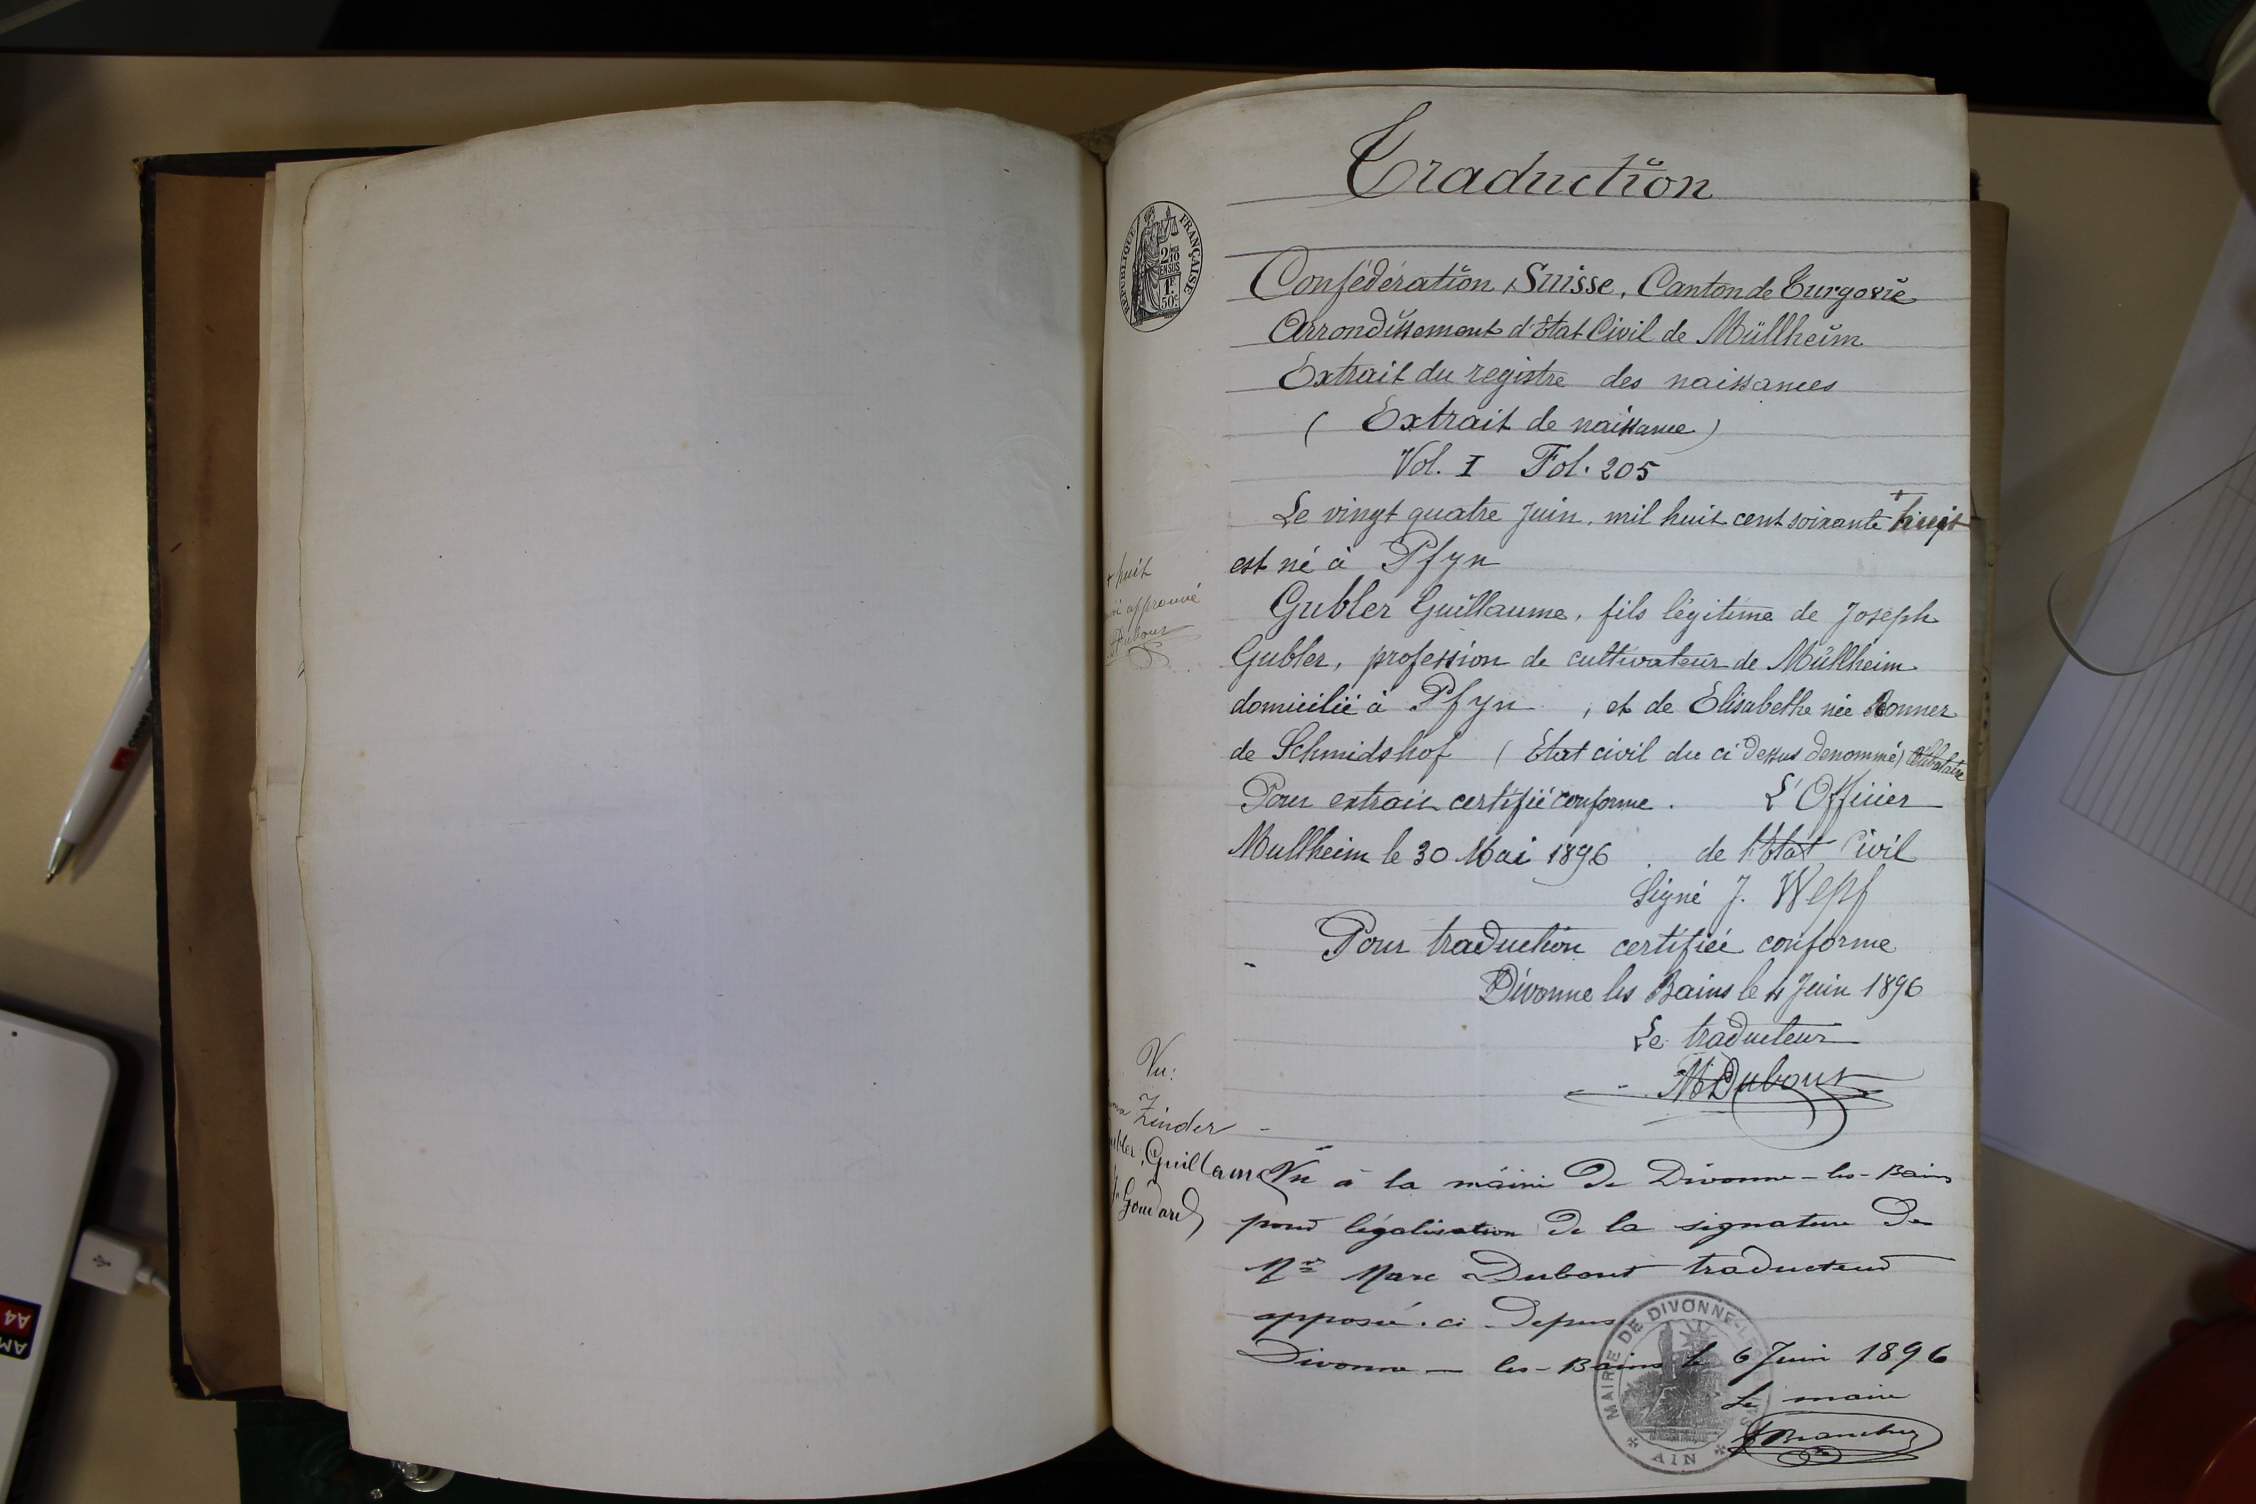 Traduction
RÉPUBLIQUE FRANÇAISE
2/10
EN SUS
1F
50c
Confédération Suisse, Canton de Turgovie
Arrondissement d'Etat Civil de Müllheim
Extrait du registre des naissances
( Extrait de naissance )
Vol. I Fol. 205
Le vingt quatre Juin, mil huit cent soixante + huit
est né à Pfyn
+ huit
approuvé
Dubout
Gubler Guillaume, fils légitime de Joseph
Gubler, profession de cultivateur de Müllheim
domicilié à Pfyn, et de Elisabethe née Ronner
de Schmidshof ( Etat civil du ci dessus denommé) Célibataire
Pour extrait certifié conforme. L'Officier
Mullheim le 30 Mai 1896. de l'Etat Civil
Signé J. Wepf
Pour traduction certifiée conforme
Divonne les Bains le 4 Juin 1896
Le traducteur
MDubout
Vu:
Zinder
Guillaume
Goudard
Vu à la mairie de Divonne-les-Bains
pour légalisation de la signature de
Mr Marc Dubout traducteur
apposée ci-depus
Divonne-les-Bains le 6 Juin 1896
Le maire
MAIRIE DE DIVONNE-LES-BAINS
AIN
AM
A4